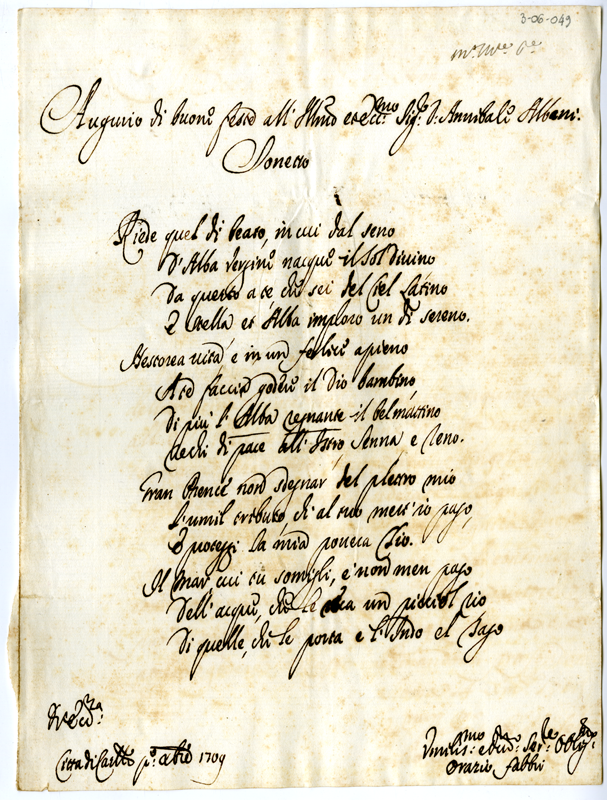 3-06-049
Augurio di buone feste all' Illmo et eccmo Sigr D. Annibale Albani.
Sonetto
Riede quel di beato, in cui dal seno
D'Alba vergine nacque il Sol Divino
Da questo a te, che sei del Ciel Latino
E stella et Alba imploro un di sereno.
Nestorea vita, e in un felice apieno
A te faccia godere il Dio bambino,
Di più l'Alba regnante il bel mattino
rechi di pace all' Istro, Senna e Reno.
Gran Prence non sdegnar del plettro mio
L'umil tributo, ch'al tuo mert'io pago,
E proteggi la mia povera Clio.
Il Mar cui tu somigli, è non men pago
Dell'acque, che le un picciol rio
Di quelle, che le porta e l'Indo el Tago
Di V. Ecc.za
Città di Castello p.o 1709
Umilis.mo e Dev. Ser.re Oblig.mo
Orazio Fabbri